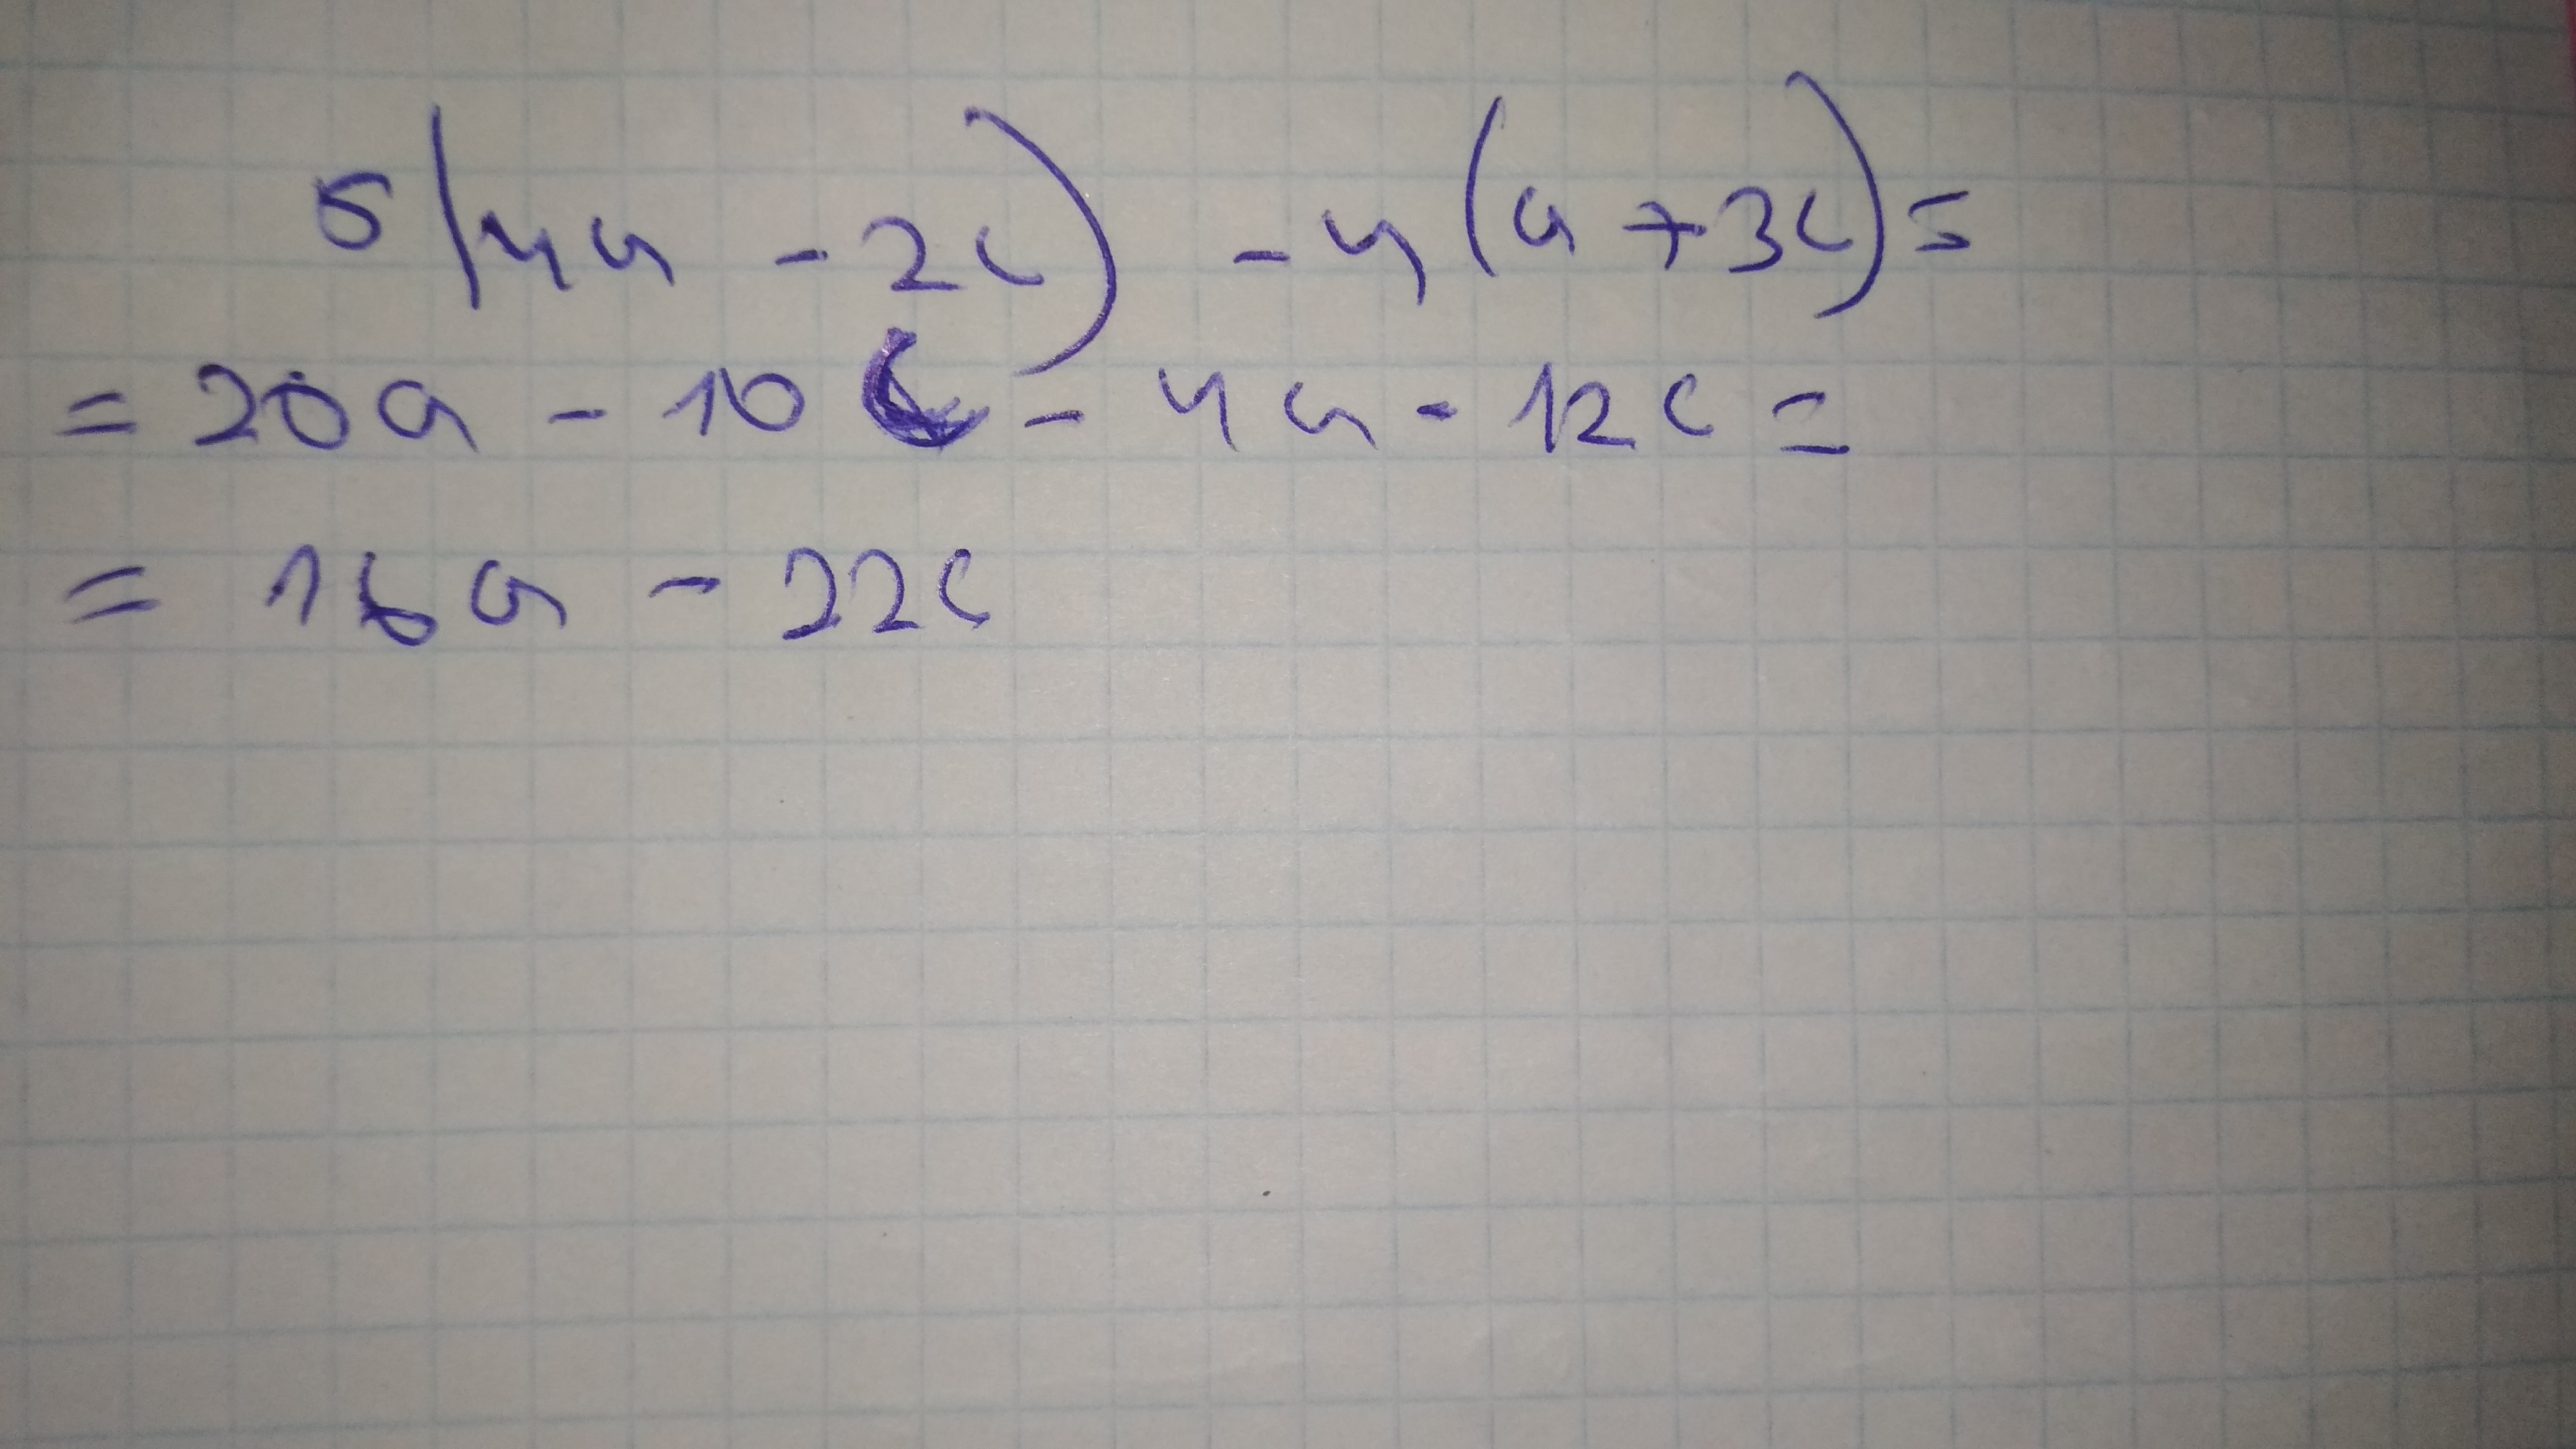 5(4a - 2c) - 4(a + 3c) =
= 20a - 10c - 4a - 12c =
= 16a - 22c